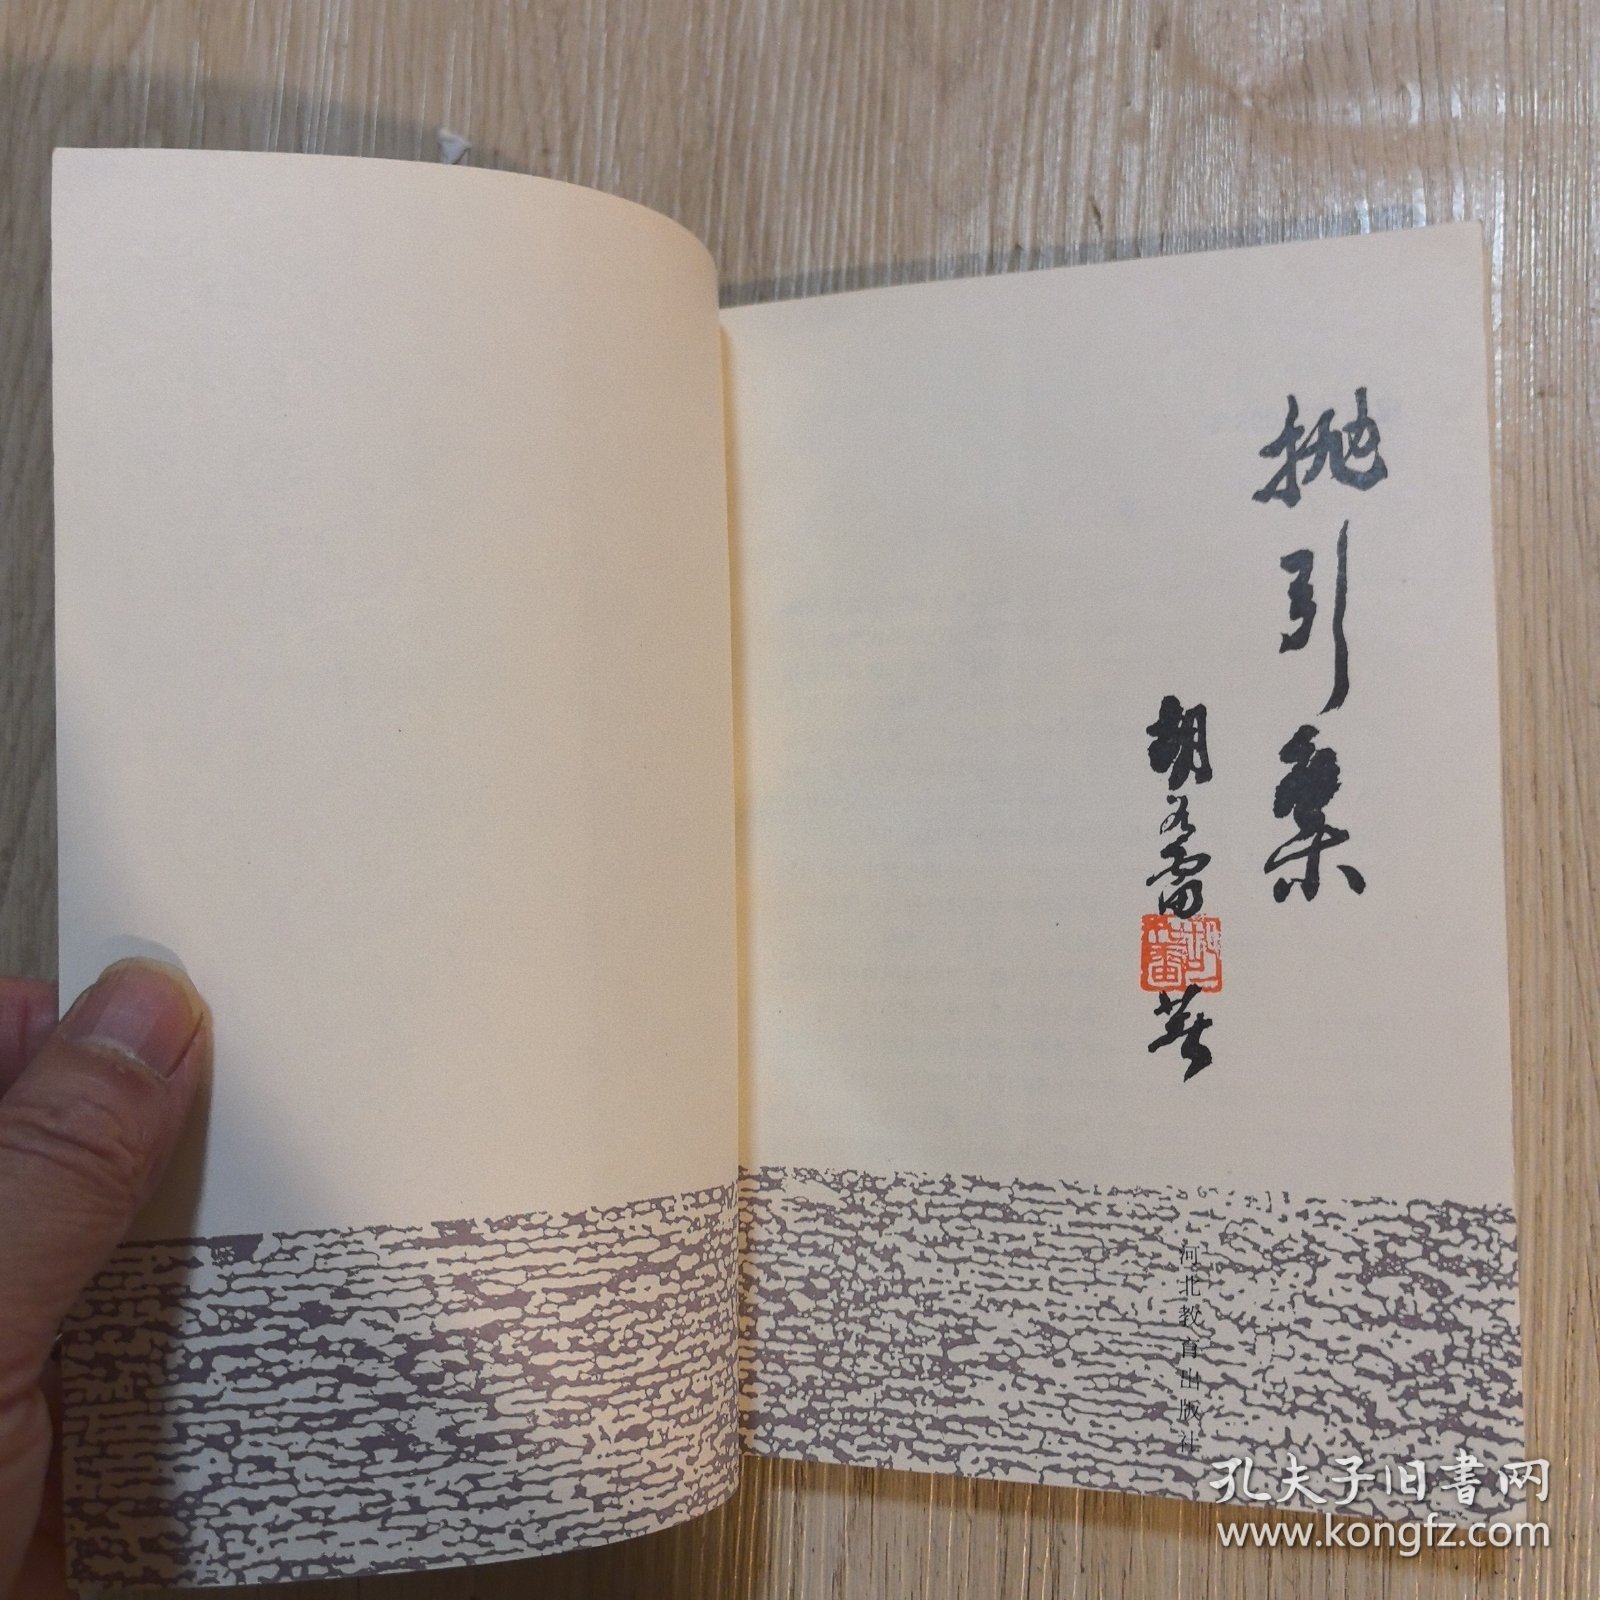 抛引集
胡如雷 著
河北教育出版社
孔夫子旧书网
www.kongfz.com